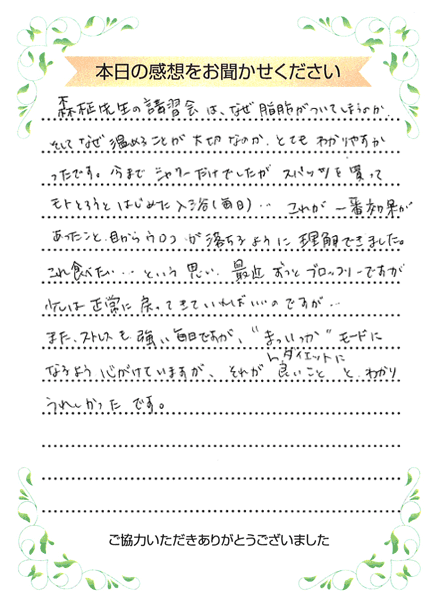 本日の感想をお聞かせください
森柾先生の講習会は、なぜ脂肪がついてしまうのか、
そしてなぜ温めることが大切なのか、とてもわかりやすか
ったです。今まで シャワーだけでしたが スパッツを買って
モトとろうとはじめた入浴(毎日)… これが一番効果が
あったこと、目からウロコが落ちるように理解できました。
これ食べたい…という思い、最近ずっとブロッコリーですが
少しは正常に戻ってきていればいいのですが…
また、ストレスも強い毎日ですが、"まっいっか"モードに
なるよう心がけていますが、それがダイエットに良いことと、わかり
うれしかったです。
ご協力いただきありがとうございました